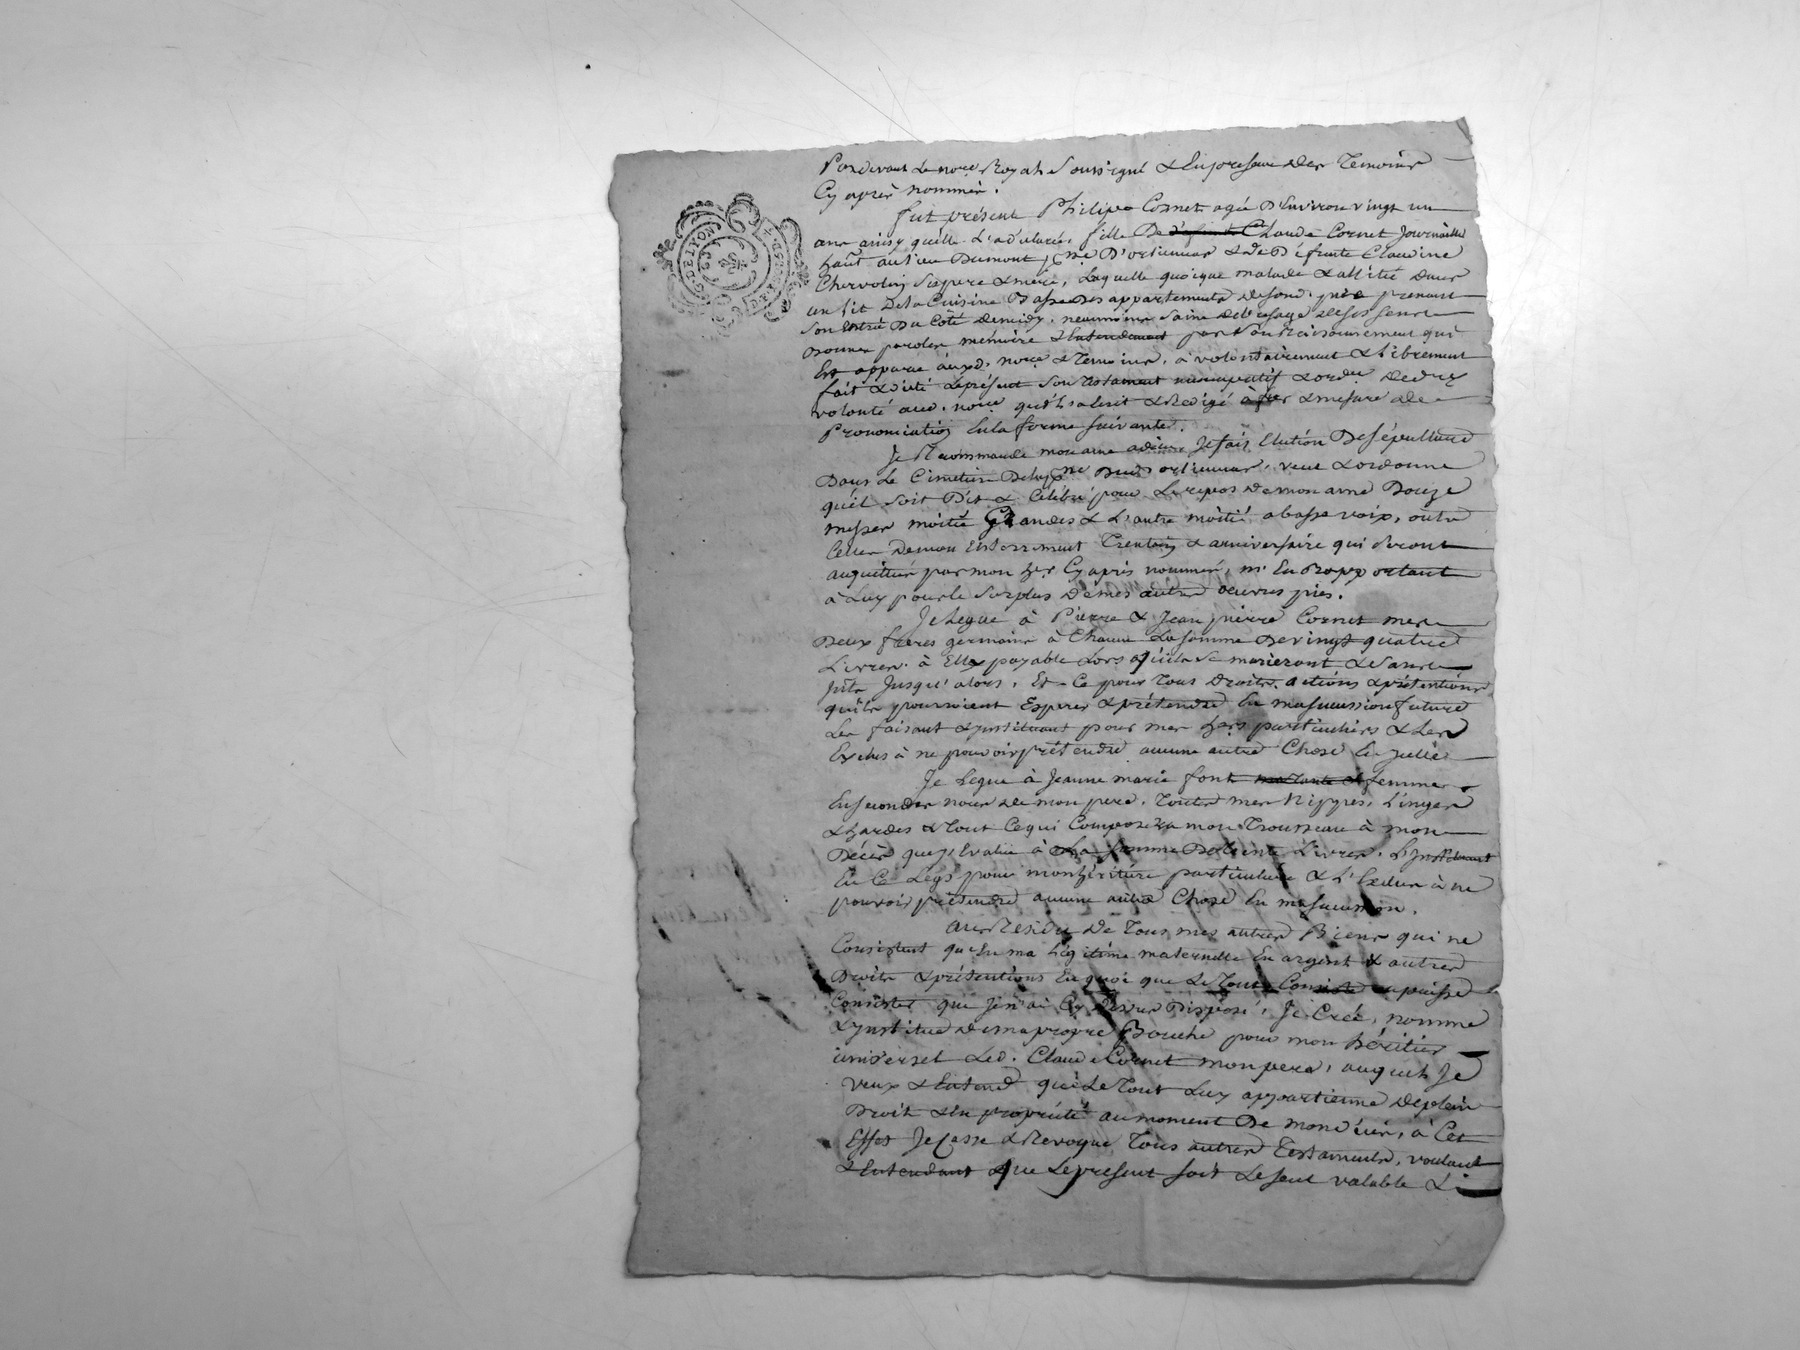 Pardevant le no.re Royal Soussigné & En presence des Temoins
Cy après nommés.
fut présente Philipe Cornet agée D'Environ vingt un
ans ainsy qu'elle L'a déclaré, fille De defunte Claude Cornet Journaillé
du lieu Dumont, D'orliennas & de Défunte Claudine
Chervolin Ses pere & mere, Laquelle quoique malade & allitée dans
un lit De la Cuisine Basse des appartements de fond. pere prenant
Son Entrée Du Côté de midy, neanmoins Saine de l'usage de ses Sens
bonne parole, mémoire & Entendement par Son Raisonnement qui
Est apparue auxd. no.re & Temoins, a volontairement & librement
fait & dicté Le présent Son Testament nuncupatif & ord.re de d.re
volonté aud. no.re qui l'a Ecrit & Redigé a fur & mesure de
Prononciation En la forme suivante.
Je Recommande mon ame a dieu, Je fais Election De Sépulture
Dans Le Cimetiere De la d'orliennas, veut & ordonne
qu'il Soit Dit & Célébré pour Le repos de mon ame Douze
messes moitié Grandes & L'autre moitié a basse voix, outre
Celles De mon Enterrement Trentain & anniversaire qui Seront
acquittées par mon her. Cy après nommé, m'En Rapportant
à Luy pour le Surplus de mes autres oeuvres pies.
Je Legue à Pierre & Jean pierre Cornet mes
Deux freres germains à Chacun La somme De vingt quatre
Livres. à Eux payable Lors qu'ils Se marieront & Sans
jnts Jusqu'alors, Et Ce pour Tous Droits, actions & prétentions
qu'ils pourroient Esperer & prétendre En ma Succession future
Les faisant & jnstituant pour mes hers particuliers & Les
Exclus à ne pouvoir prétendre aucune autre Chose En Jcelle
Je Legue à Jeanne marie font ma Tante & femme
En Secondes noces de mon pere, Toutes mes Nippes, Linges
& hardes & Tout Ce qui Composera mon Trousseau à mon
Décès que j'Evalue à La Somme De Trente Livres. L'jnstituant
En Ce Legs pour mon héritiere particuliere & L'Exclus à ne
pouvoir prétendre aucune autre Chose En ma Succession.
au Residu de Tous mes autres Biens qui ne
Consistent qu'En ma Légitime maternelle En argent & autres
Droits & prétentions En quoi que Le Tout Consiste ou puisse
Consister que je n'ai Cy dessus Disposé, Je Créé, nomme
& jnstitue de ma propre Bouche pour mon héritier
universel Led. Claude Cornet mon pere, auquel Je
veux & Entend que Le Tout Luy appartienne de plein
Droit & En propriété au moment De mon décès, à Cet
Effet Je Casse & Revoque Tous autres Testaments, voulant
& Entendant que Le présent soit Le seul valable &
DE LYON